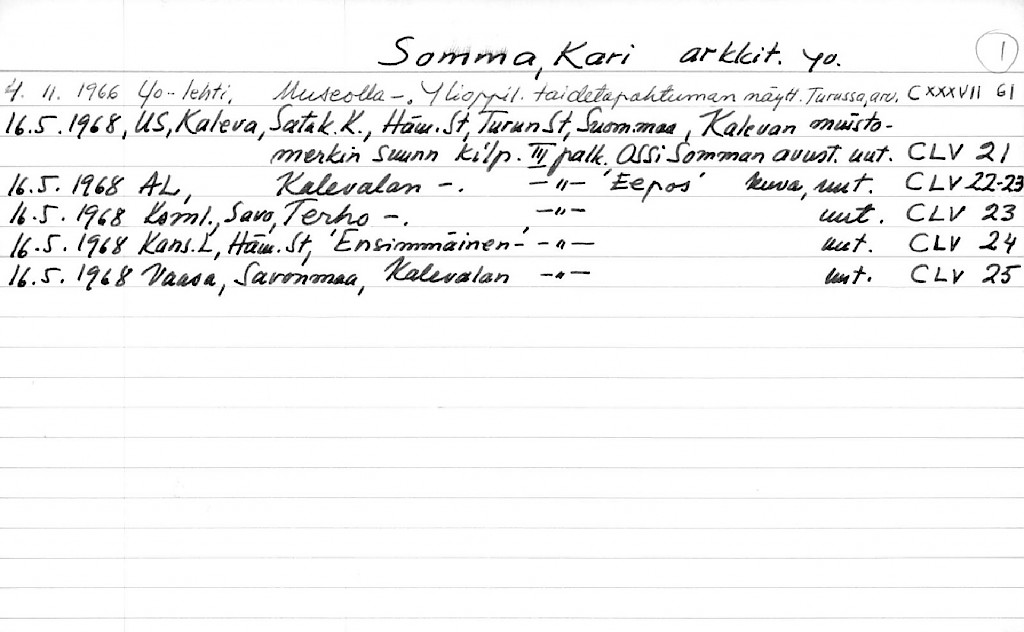 Somma, Kari arkkit. yo. 1
4. 11. 1966 Yo-lehti, Museolla -. Ylioppil. taidetapahtuman näytt. Turussa, arv. CXXXVII 61
16.5.1968, US, Kaleva, Satak. K., Häm. St, Turun St, Suommaa, Kalevan muisto-
merkin suunn kilp. III palk. Ossi Somman avust. uut. CLV 21
16.5.1968 AL, Kalevalan -. -"- 'Eepos' kuva, uut. CLV 22-23
16.5.1968 Koml., Savo, Terho -. -"- uut. CLV 23
16.5.1968 Kans. L, Häm. St, 'Ensimmäinen-' -"- uut. CLV 24
16.5.1968 Vaasa, Savonmaa, Kalevalan -"- uut. CLV 25